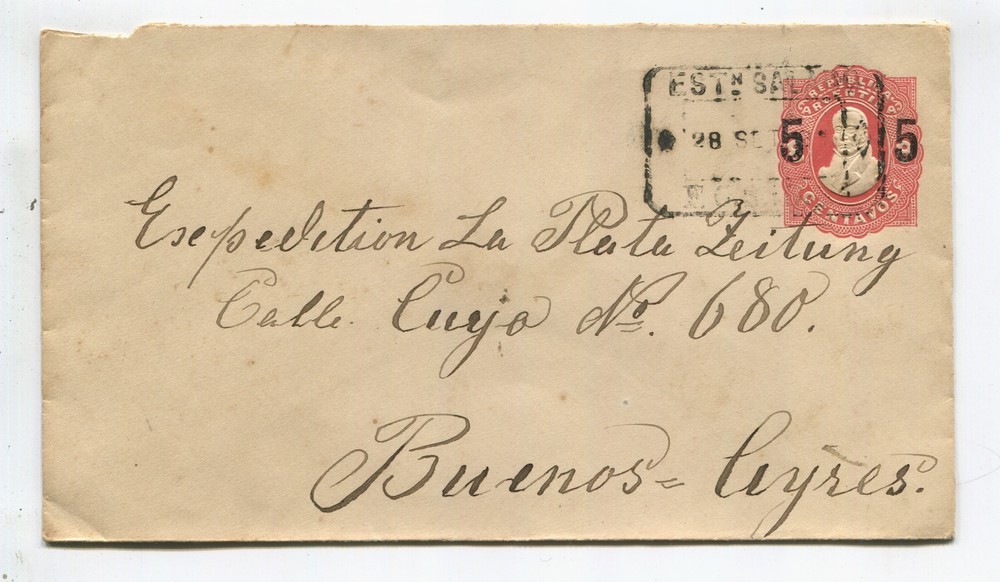 ESTN SAL
28 SET
REPUBLICA
ARGENTINA
5 5
CENTAVOS
Expedition La Plata Zeitung
Calle Cuyo No. 680.
Buenos=Ayres.